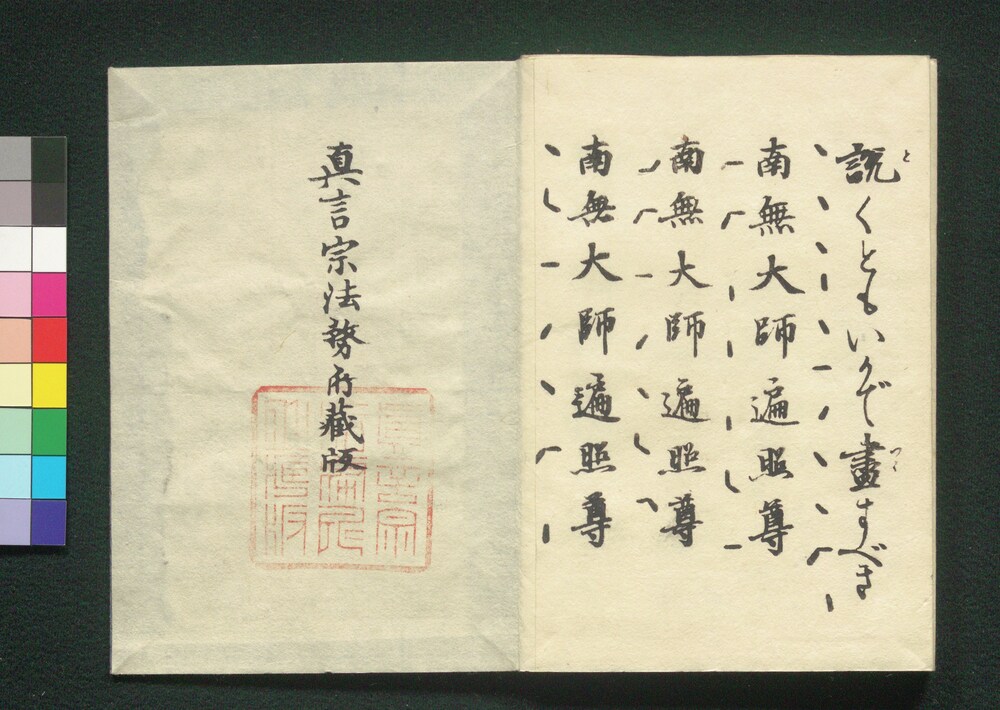 説くともいかで盡すべき
南無大師遍照尊
南無大師遍照尊
南無大師遍照尊
真言宗法務所藏版